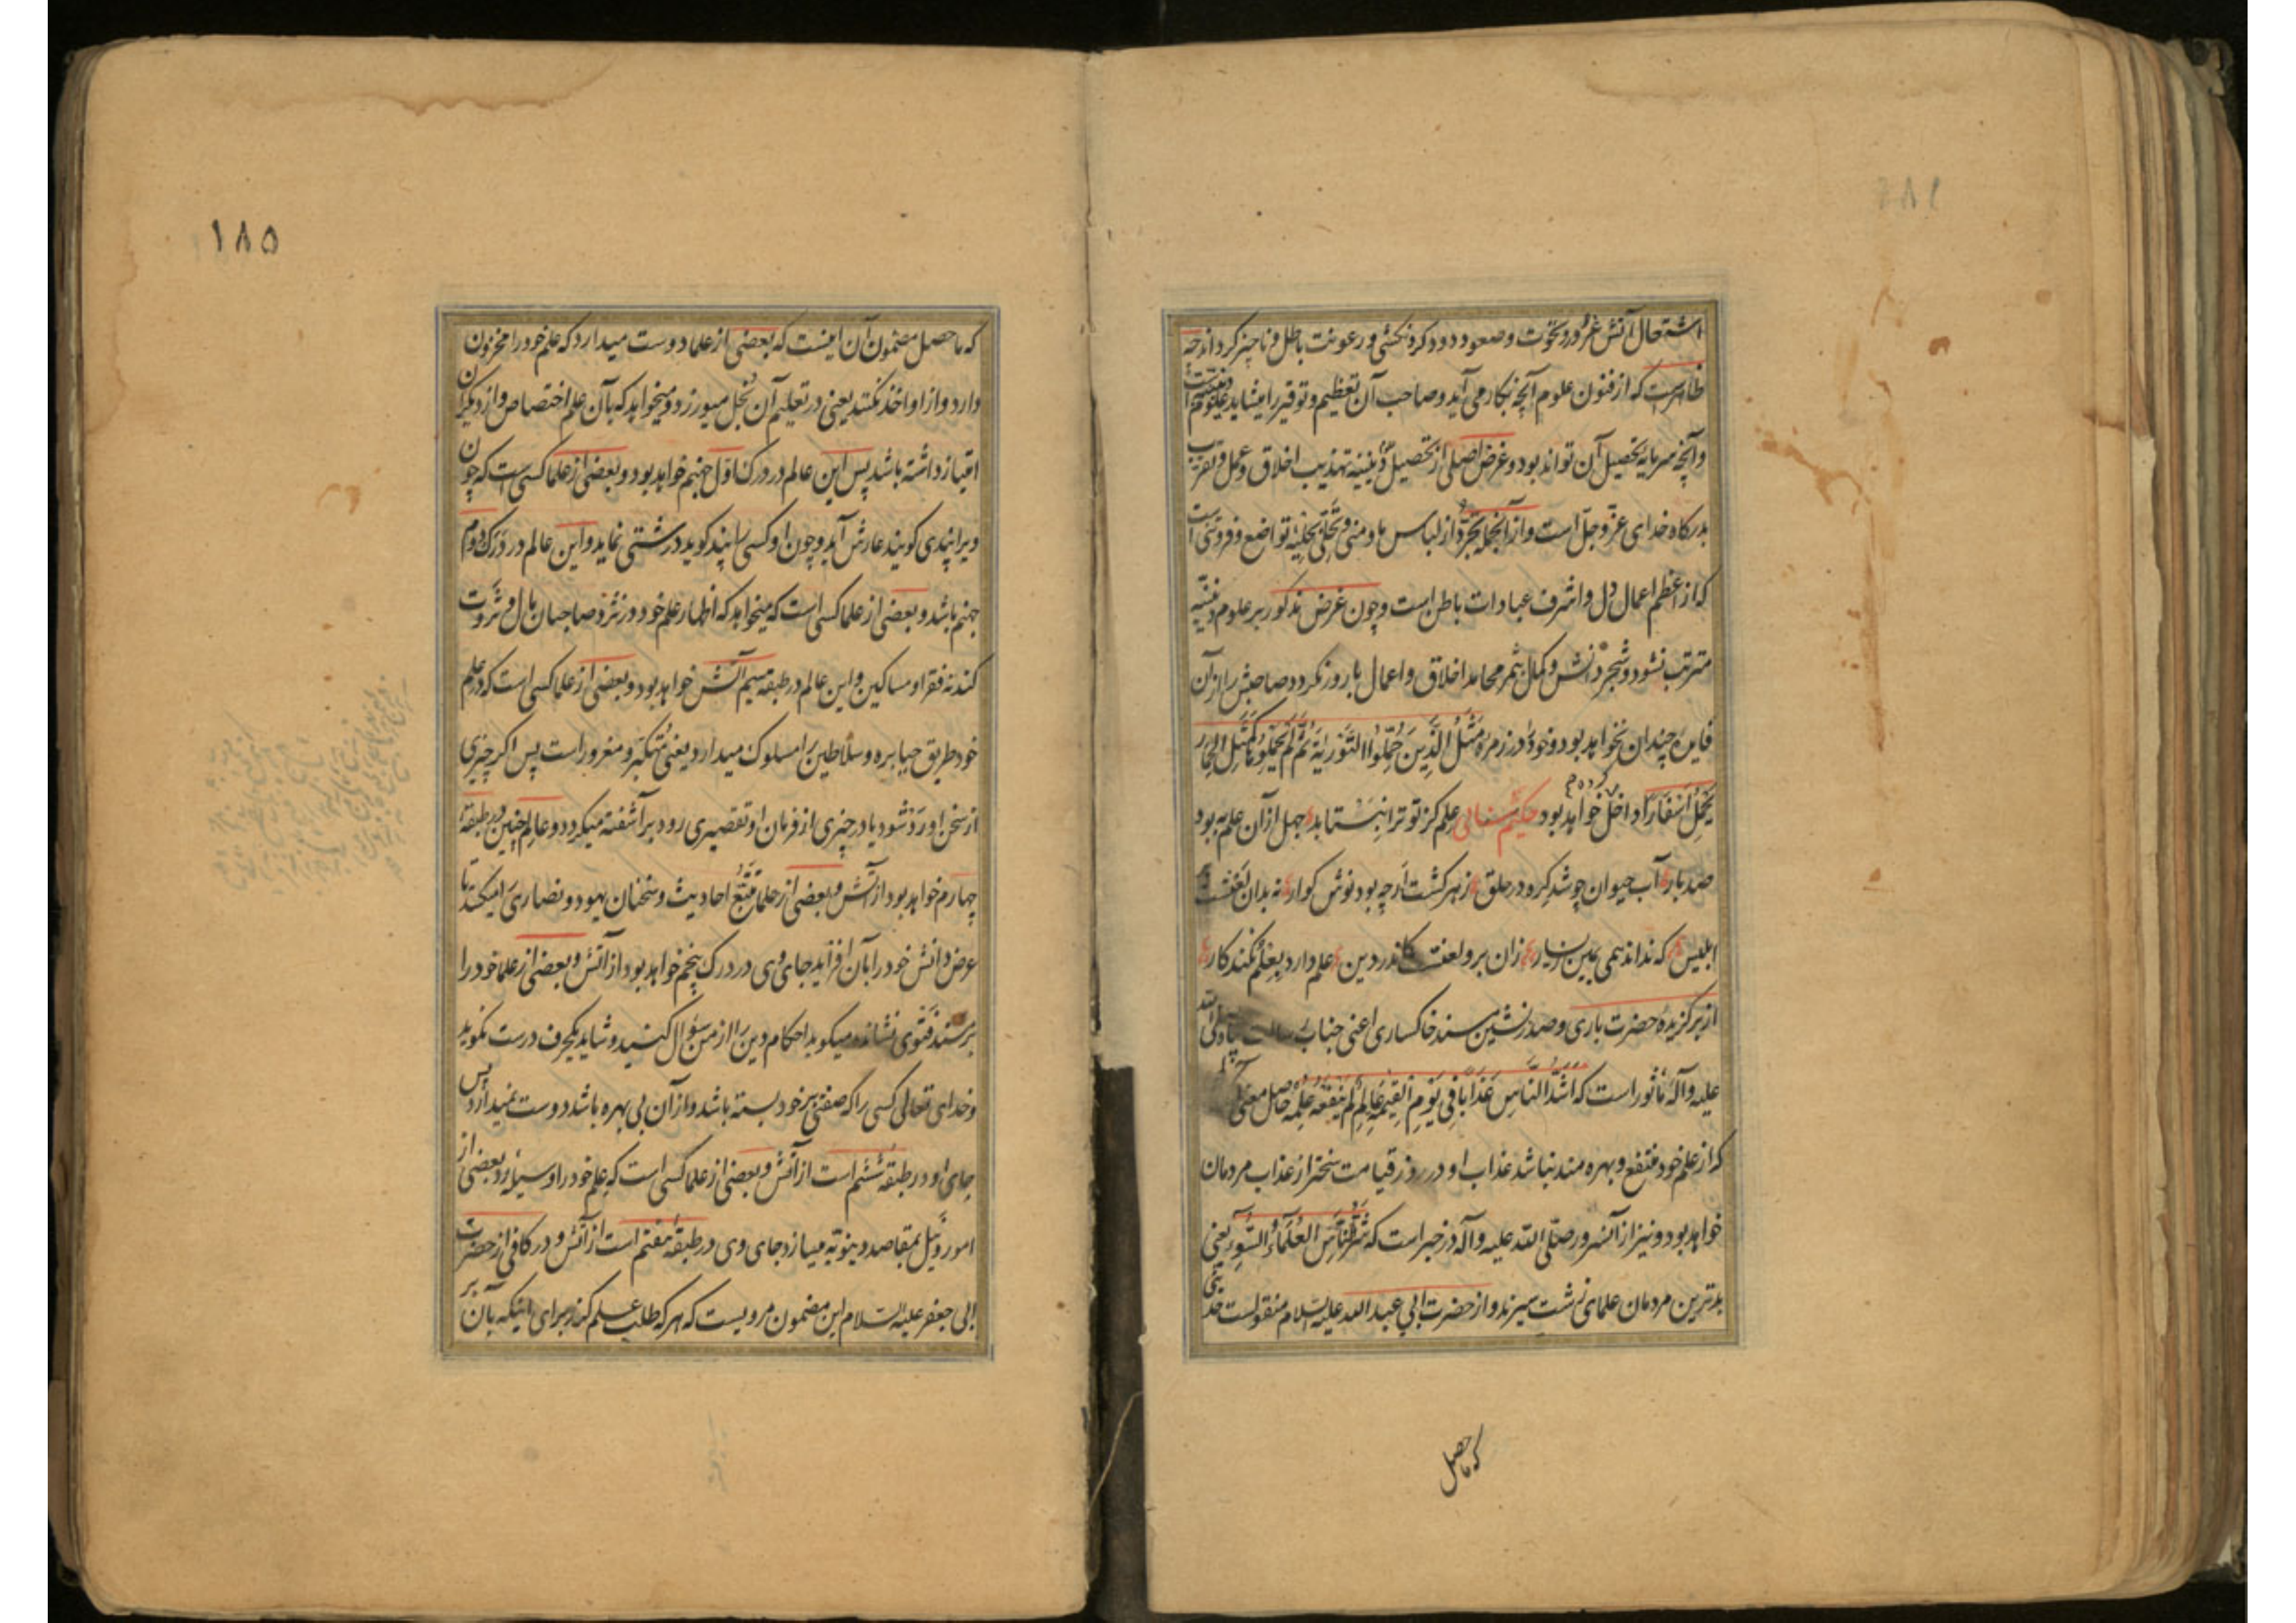 اشتعال آتش غرور و نخوت و صعود دود کردنکشی و رعونت باطل و ناچیز کرداند چه
ظاهرست که از فنون علوم آنچه بکار می آید و صاحب آن تعظیم و توقیر را میشاید علوم دینیه است
و آنچه سرمایه تحصیل آن تواند بود و غرض اصلی از تحصیل دینیه تهذیب اخلاق و عمل و تقرب
بدرکاه خدای عزّ و جلّ است و از آنجمله تجرّد از لباس ما و منی و تحلّی بحلیه تواضع و فروتنی است
که از اعظم اعمال دل و اشرف عبادات باطن است و چون غرض مذکور بر علوم دینیّه
مترتب نشود و شجر دانش و کمال بثمر محامد اخلاق و اعمال بارور نکردد صاحبش را از آن
فایده چندان نخواهد بود و خود در زمره مَثَلُ الَّذِینَ حُمِّلُوا التَّوْرٰیةَ ثُمَّ لَمْ یَحْمِلُوهَا کَمَثَلِ الْحِمَارِ
یَحْمِلُ اَسْفَارًا داخل خواهد بود حکیم سنائی علم کز تو ترا نبستاند جهل از آن علم به بود
صد بار آب حیوان چو شد کره در حلق زهر کشت ارچه بود نوش کوار نه بدان لعنت است
ابلیس که نداند همی یمین ز یسار زان برو لعنت کاندر دین علم دارد بعلم نکند کار
از برکزیده حضرت باری و صدرنشین مسند خاکساری اعنی جناب رسالت پناه صلی الله
علیه و آله مأثور است که اَشَدُّ النَّاسِ عَذَابًا فِی یَوْمِ الْقِیٰمَةِ عَالِمٌ لَمْ یَنْفَعْهُ عِلْمُهُ حاصل معنی آنکه
که از علم خود منتفع و بهره مند نباشد عذاب او در روز قیامت سختر از عذاب مردمان
خواهد بود و نیز از آنسرور صلّی الله علیه و آله در خبر است که شَرُّ النَّاسِ الْعُلَمَاءُ السُّوءِ یعنی
بدترین مردمان علمای زشت سیرند و از حضرت ابی عبد الله علیه السلام منقولست حدیثی
که ماحصل
۱۸۵
که ماحصل مضمون آن اینست که بعضی از علما دوست میدارد که علم خود را مخزون
دارد و از او اخذ نکنند یعنی در تعلیم آن بخل میورزد و میخواهد که بآن علم اختصاص و از دیکران
امتیاز داشته باشد پس این عالم در درک اوّل جهنم خواهد بود و بعضی از علما کسی است که چون
ویرا پندی کویند عارش آید و چون او کسی را پند کوید درشتی نماید و این عالم در درک دوم
جهنم باشد و بعضی از علما کسی است که میخواهد که اظهار علم خود در نزد صاحبان مال و ثروت
کند نه فقرا و مساکین و این عالم در طبقه سیم آتش خواهد بود و بعضی از علما کسی است که در علم
خود طریق جبابره و سلاطین را مسلوک میدارد یعنی متکبّر و مغرور است پس اکر چیزی
از سخن او رد شود یا در چیزی از فرمان او تقصیری رود بر آشفته میکردد و عالم چنین در طبقه
چهارم خواهد بود از آتش و بعضی از علما تتبّع احادیث و سخنان یهود و نصاری را میکند تا
عرض دانش خود را بآن افزاید جای وی در درک پنجم خواهد بود از آتش و بعضی از علما خود را
بر مسند فتوی نشانده میکوید احکام دین را از من سؤال کنید و شاید یکحرف درست نکوید
و خدای تعالی کسی را که صفتی بر خود بسته باشد و از آن بی بهره باشد دوست نمیدارد پس
جای او در طبقه ششم است از آتش و بعضی از علما کسی است که علم خود را وسیله بعضی از
امور و نیل بمقاصد دنیویّه میسازد جای وی در طبقه هفتم است از آتش و در کافی از حضرت
ابی جعفر علیه السلام این مضمون مرویست که هر که طلب علم کند برای اینکه بآن بر